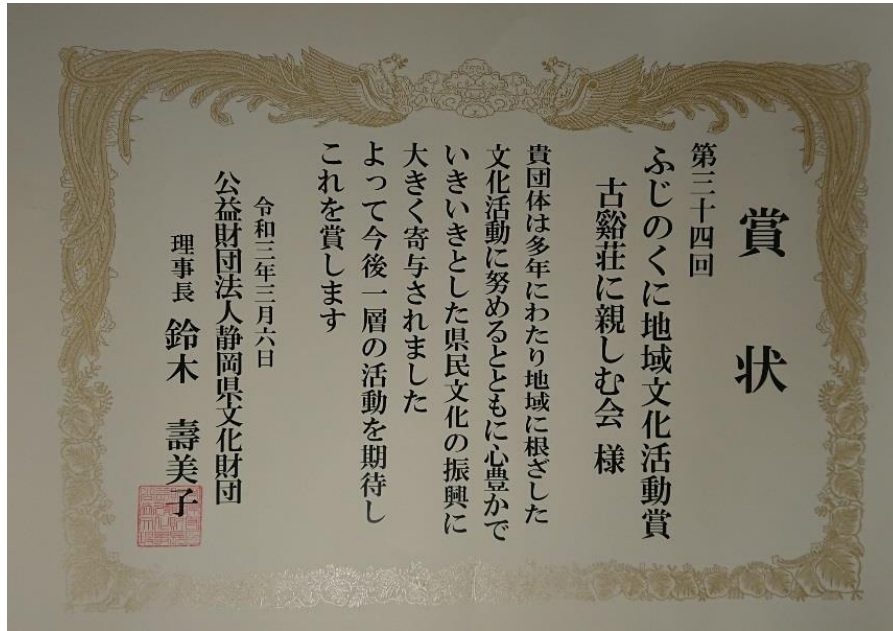 賞状
第三十四回
ふじのくに地域文化活動賞
古谿荘に親しむ会 様
貴団体は多年にわたり地域に根ざした
文化活動に努めるとともに心豊かで
いきいきとした県民文化の振興に
大きく寄与されました
よって今後一層の活動を期待し
これを賞します
令和三年三月六日
公益財団法人静岡県文化財団
理事長 鈴木 壽美子